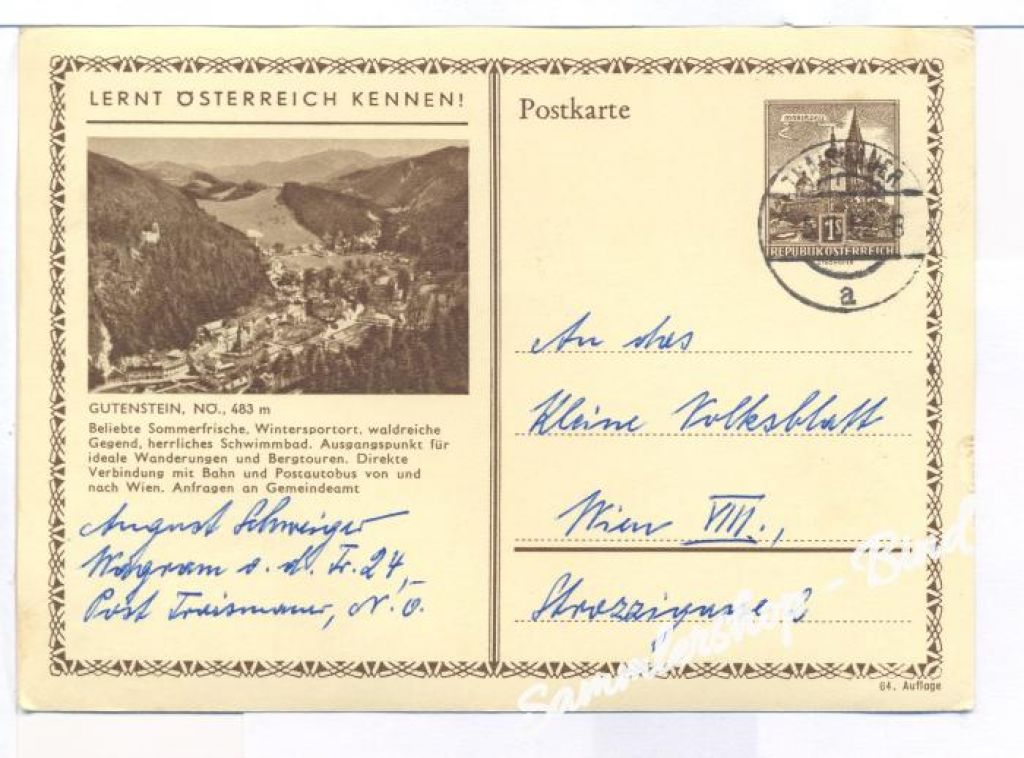 LERNT ÖSTERREICH KENNEN!
GUTENSTEIN, NÖ., 483 m
Beliebte Sommerfrische, Wintersportort, waldreiche
Gegend, herrliches Schwimmbad. Ausgangspunkt für
ideale Wanderungen und Bergtouren. Direkte
Verbindung mit Bahn und Postautobus von und
nach Wien. Anfragen an Gemeindeamt
August Schweiger
Wagram o. d. Tr. 24,
Post Traismauer, N.Ö.
Postkarte
MARIAZELL
1S
REPUBLIK ÖSTERREICH
TRAISMAUER
a
An das
Kleine Volksblatt
Wien VIII.,
Strozzigasse 8
64. Auflage
Sammlershop - Bind